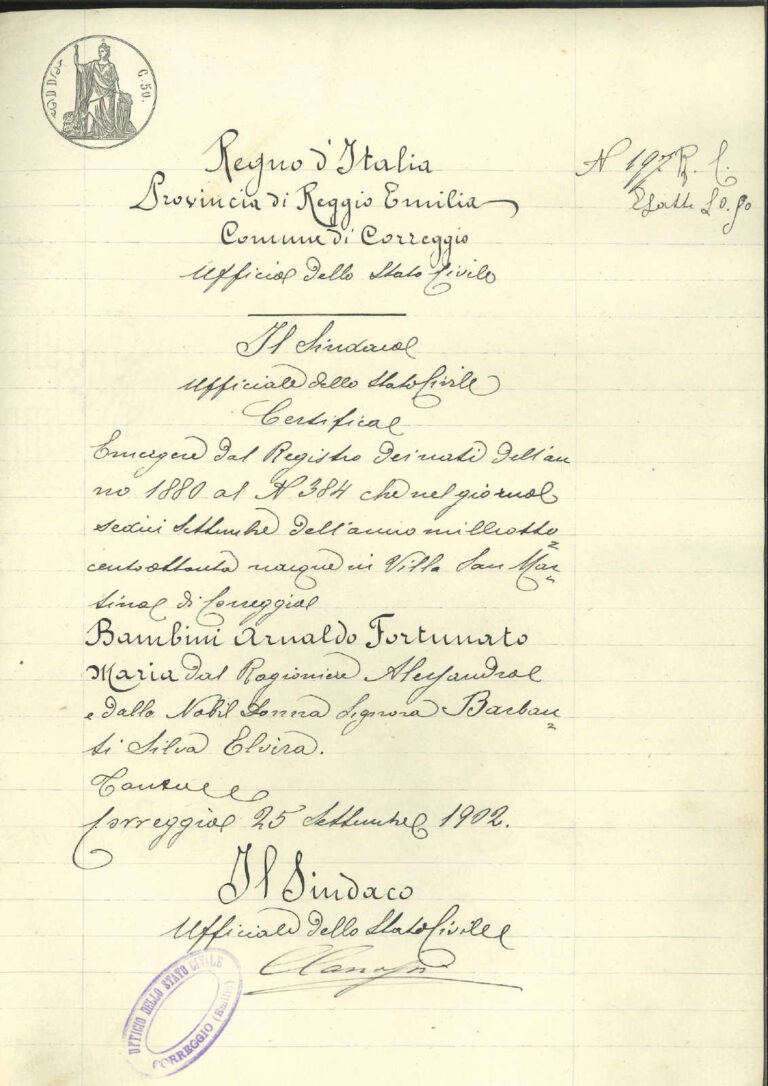 C. 50.
N 197 R. C.
Esatte £ 0.50
Regno d'Italia
Provincia di Reggio Emilia
Comune di Correggio
Ufficio dello Stato Civile
Il Sindaco
Ufficiale dello Stato Civile
Certifica
Emergere dal Registro dei nati dell'an
no 1880 al N 384 che nel giorno
sedici Settembre dell'anno milleotto=
centoottanta nacque in Villa San Mar=
tino di Correggio
Bambini Arnaldo Fortunato
Maria dal Ragioniere Alessandro
e dalla Nobil Donna Signora Barban=
ti Silva Elvira.
Correggio 25 Settembre 1902.
Il Sindaco
Ufficiale dello Stato Civile
UFFICIO DELLO STATO CIVILE
CORREGGIO (Emilia)